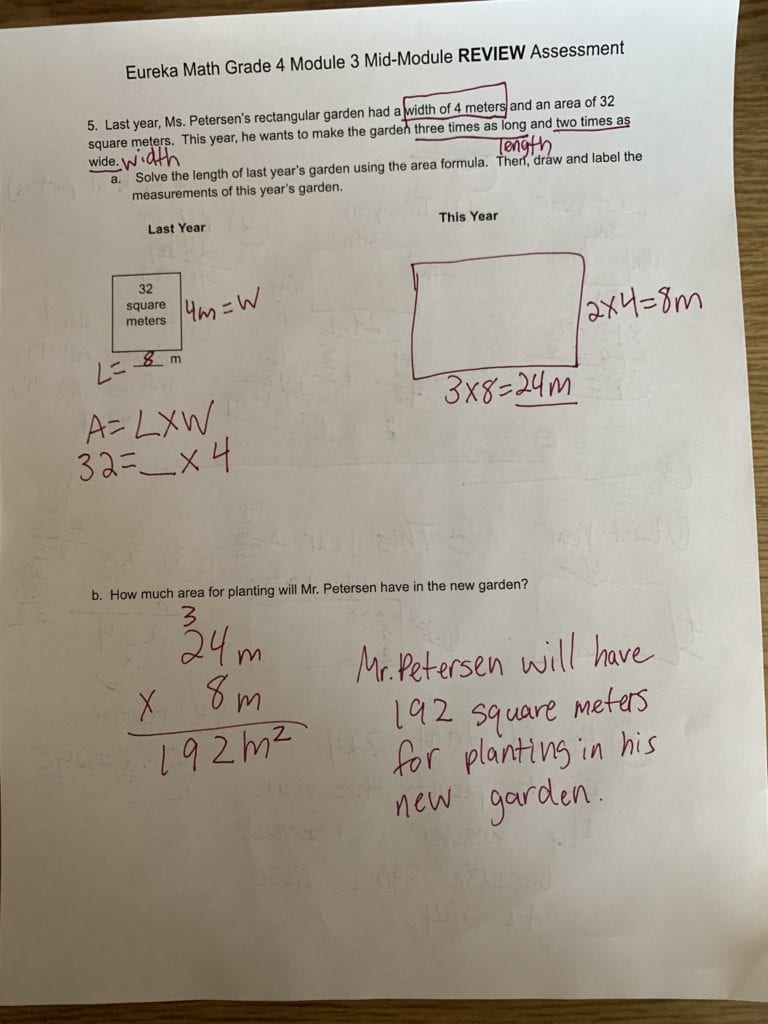 Eureka Math Grade 4 Module 3 Mid-Module REVIEW Assessment
5. Last year, Ms. Petersen's rectangular garden had a width of 4 meters and an area of 32
square meters. This year, he wants to make the garden three times as long and two times as
wide. width length
a. Solve the length of last year's garden using the area formula. Then, draw and label the
measurements of this year's garden.
Last Year
This Year
32
square
meters
4m = W
L = 8 m
2x4=8m
3x8=24m
A= LXW
32=__x 4
b. How much area for planting will Mr. Petersen have in the new garden?
3
24m
x 8m
192m²
Mr. Petersen will have
192 square meters
for planting in his
new garden.